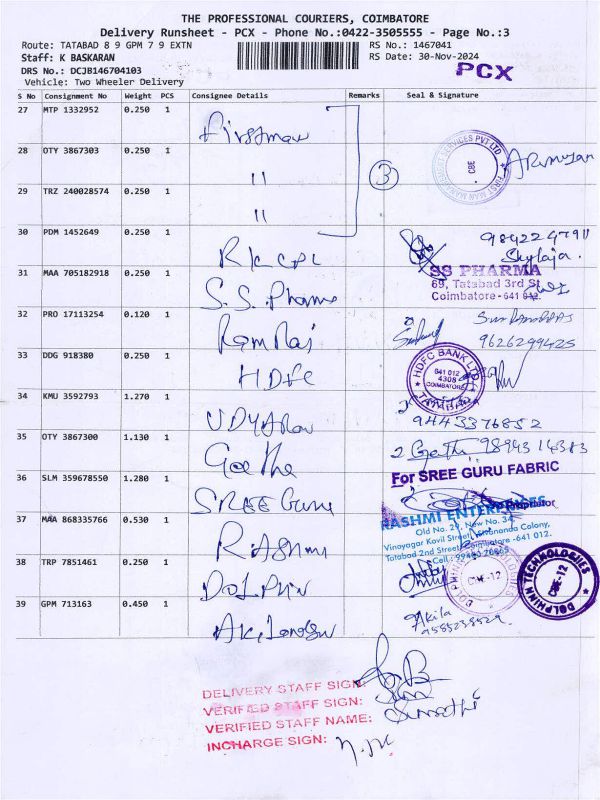 THE PROFESSIONAL COURIERS, COIMBATORE
Delivery Runsheet - PCX - Phone No.:0422-3505555 - Page No.:3
Route: TATABAD 8 9 GPM 7 9 EXTN
RS No.: 1467041
Staff: K BASKARAN
RS Date: 30-Nov-2024
DRS No.: DCJB146704103
PCX
Vehicle: Two Wheeler Delivery
S No Consignment No Weight PCS Consignee Details Remarks Seal & Signature
27 MTP 1332952 0.250 1 Firstman
28 OTY 3867303 0.250 1 "
3
FIRST MAN MANAGEMENT SERVICES PVT LTD
CBE
29 TRZ 240028574 0.250 1 "
30 PDM 1452649 0.250 1 RK CPL
Shylaja
31 MAA 705182918 0.250 1 S.S. Pharma
SS PHARMA
69, Tatabad 3rd St
Coimbatore - 641 012.
32 PRO 17113254 0.120 1 Ram Raj
9626299425
33 DDG 918380 0.250 1 HDFC
HDFC BANK LTD
641 012
4308
COIMBATORE
TATABAD
34 KMU 3592793 1.270 1
9443376852
35 OTY 3867300 1.130 1 Geetha
Geetha 9894314383
36 SLM 359678550 1.280 1 SREE Guru
For SREE GURU FABRIC
Proprietor
37 MAA 868335766 0.530 1 RASHMI
RASHMI ENTERPRISES
Old No. 29, New No. 34,
Vinayagar Kovil Street, Sivananda Colony,
Tatabad 2nd Street, Coimbatore - 641 012.
38 TRP 7851461 0.250 1 DOLPHIN
DOLPHINN TECHNOLOGIES
CBE-12
DOLPHINN TECHNOLOGIES
CBE-12
39 GPM 713163 0.450 1
Akila
DELIVERY STAFF SIGN:
VERIFIED STAFF SIGN:
VERIFIED STAFF NAME: Sumathi
INCHARGE SIGN: